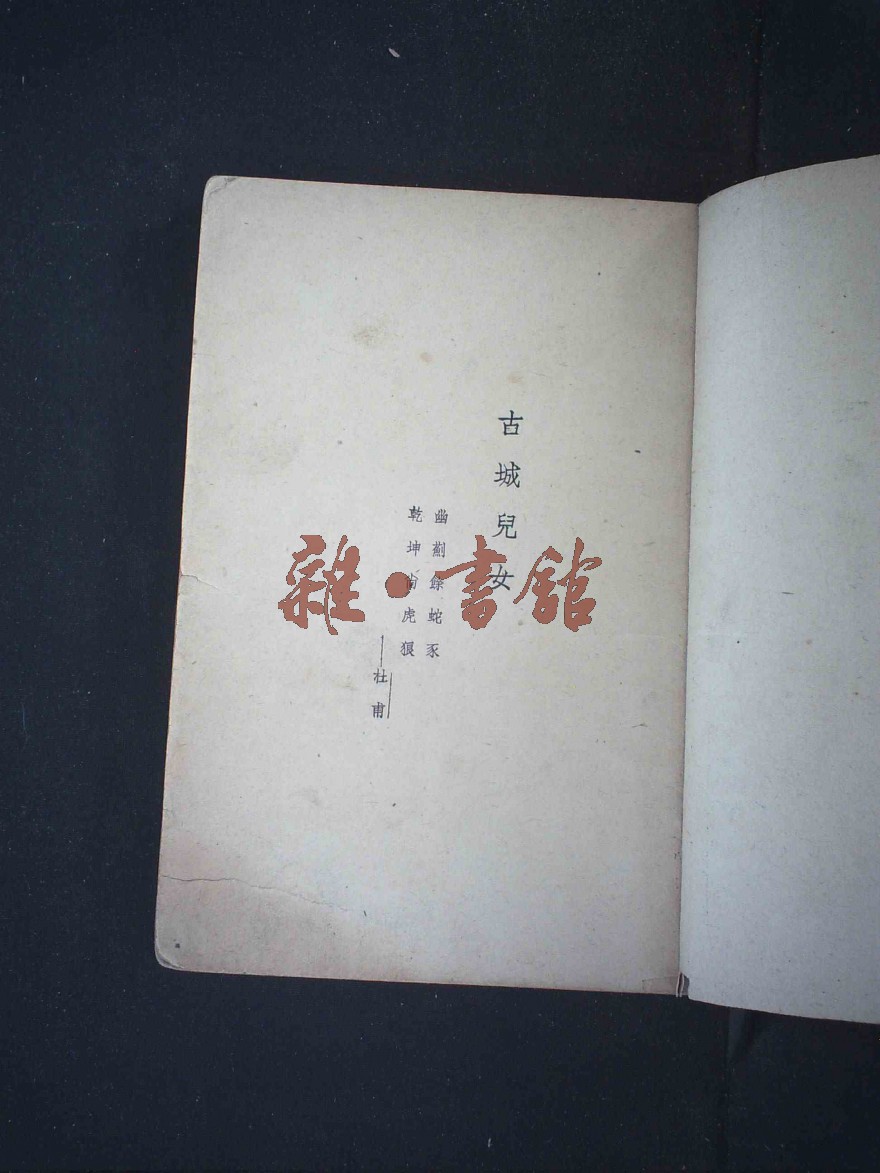 古城兒女
幽薊餘蛇豕
乾坤尚虎狼
——杜甫
雜·書館